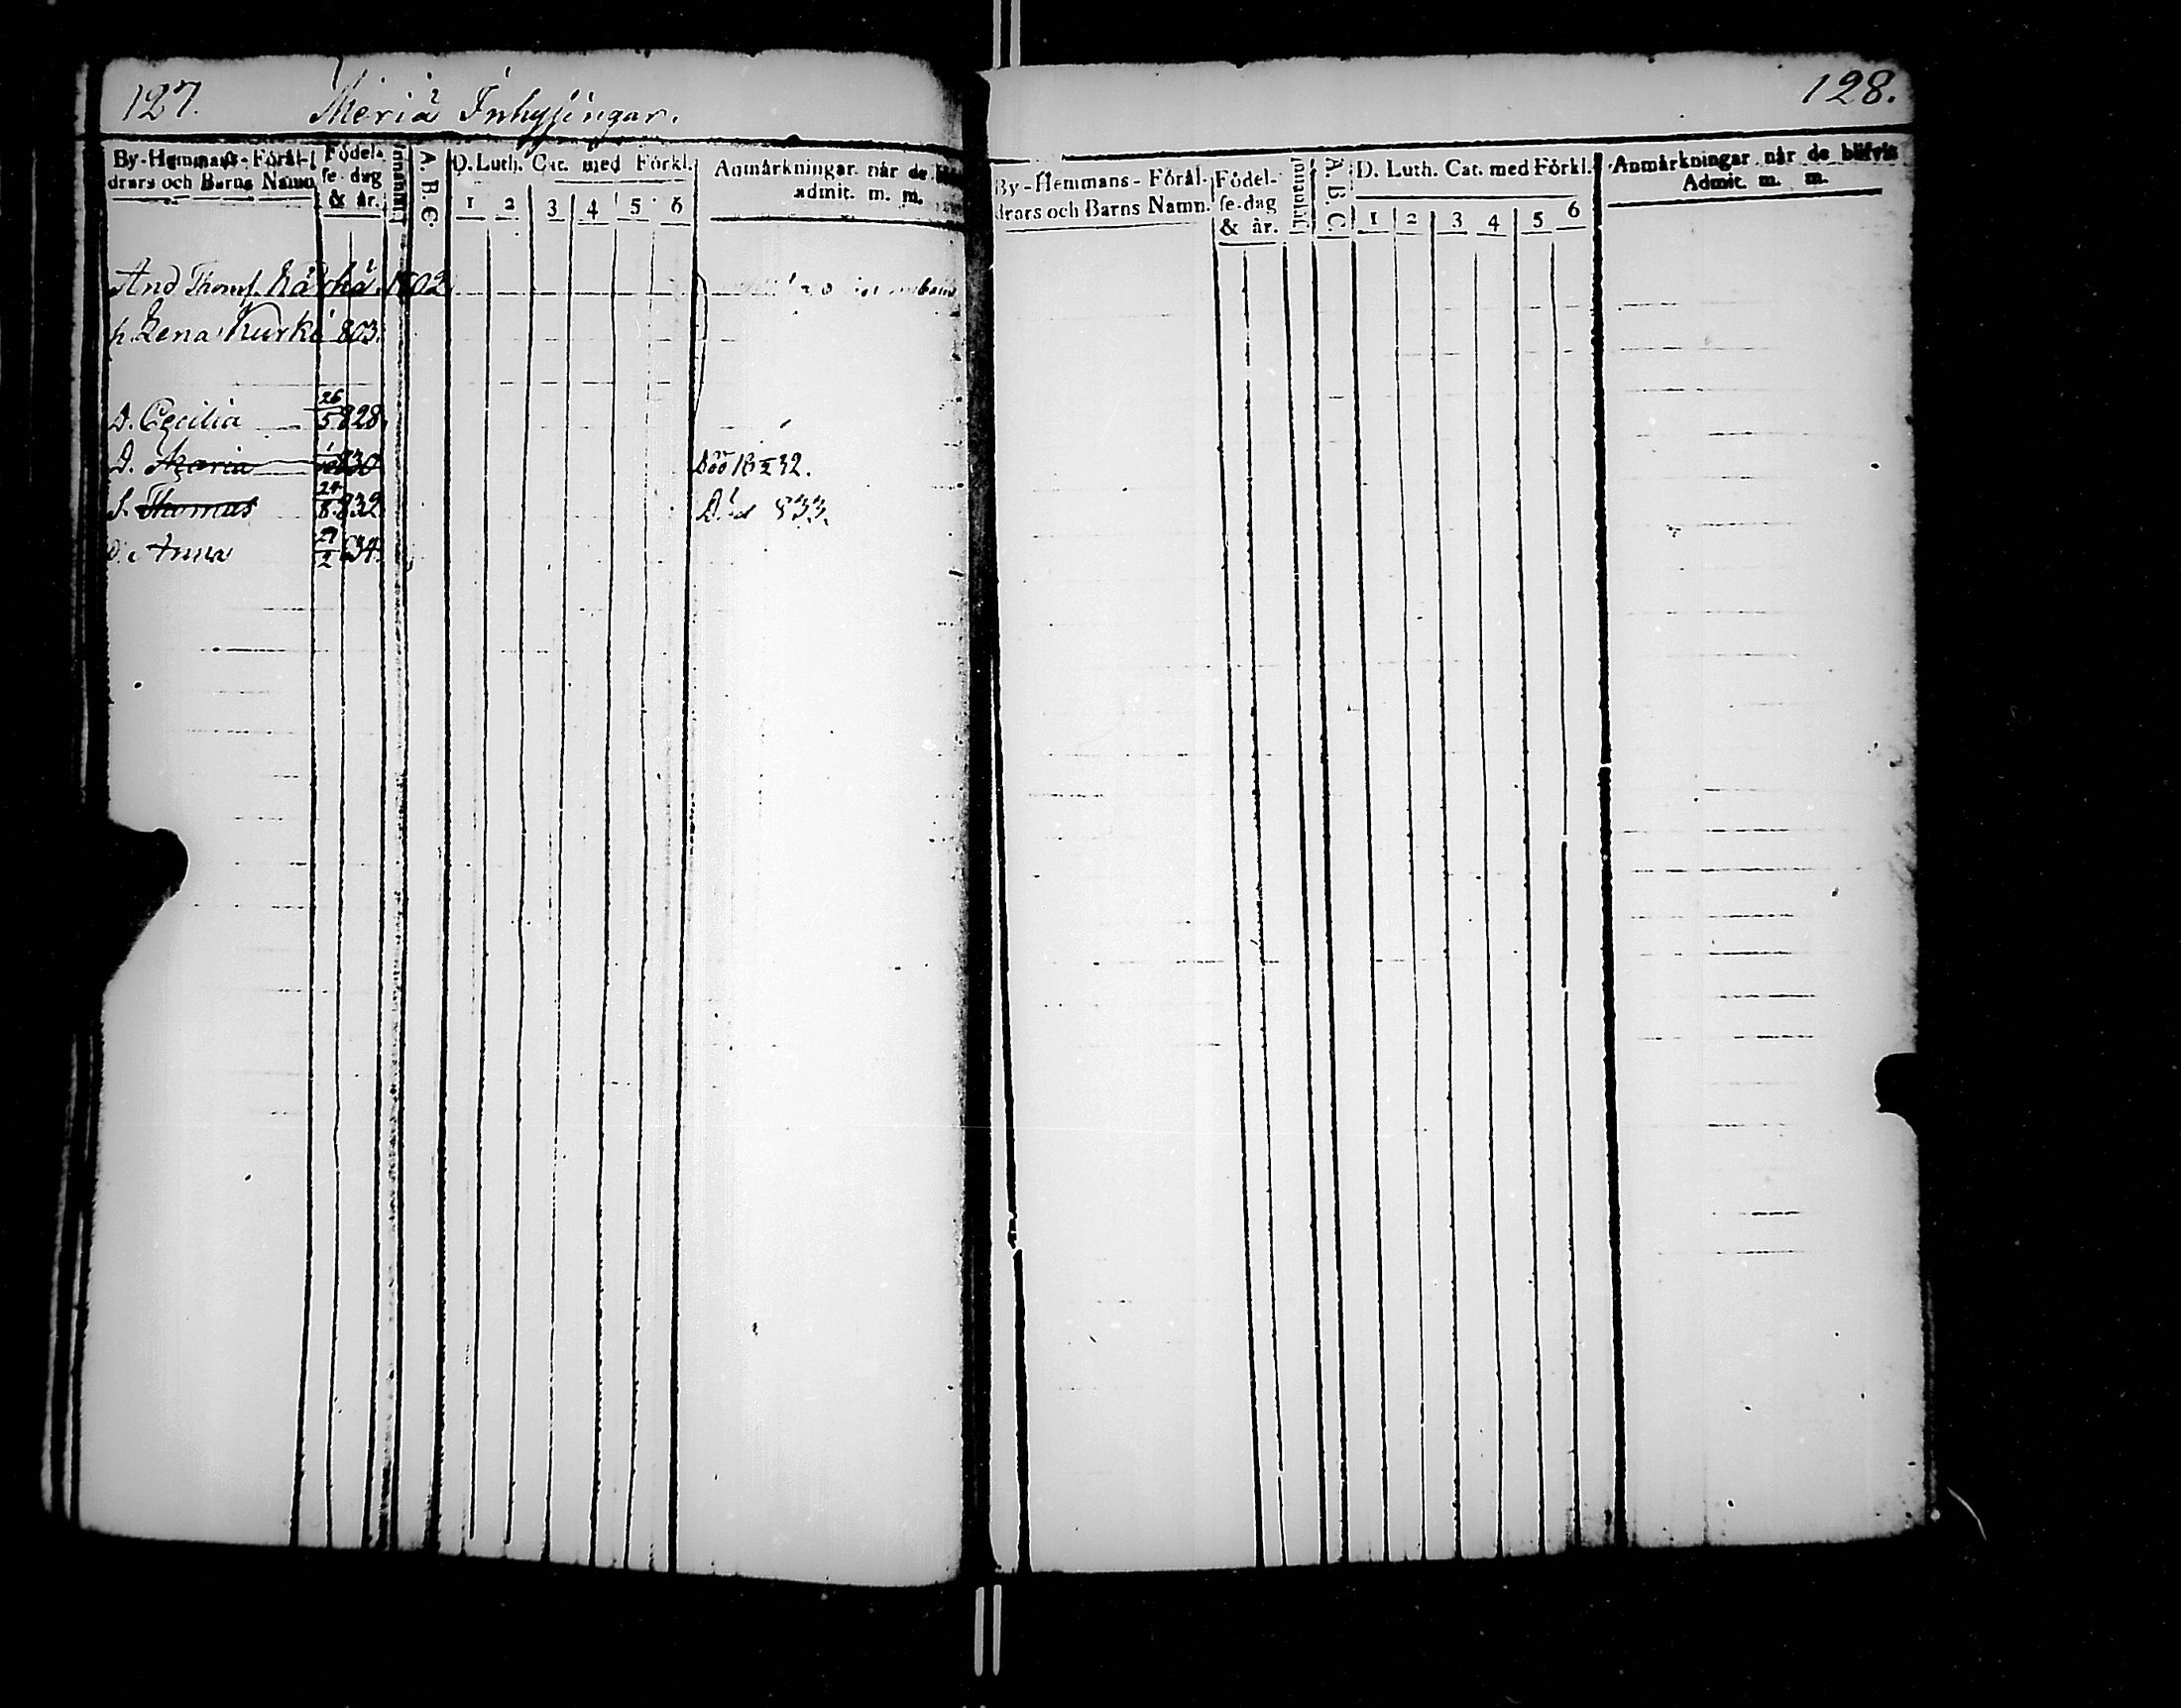 127. Meriå Inhysingar.
By-Hemmans-Föräl-
drars och Barns Namn
Födel-
se-dag
& år.
A. B. C.
D. Luth. Cat. med Förkl.
1 2 3 4 5 6
Anmärkningar när de
admit. m. m.
And Thoms. 1802
h. Lena Kurki 803.
D. Cecilia 26/5 828.
D. Maria 830
Död 18/2 32.
S. Thomas 24/8 832
Död 833.
D. Anna 27/2 834.
128.
By-Hemmans-Föräl-
drars och Barns Namn.
Födel-
se-dag
& år.
A. B. C.
D. Luth. Cat. med Förkl.
1 2 3 4 5 6
Anmärkningar när de blifvit
Admit. m. m.